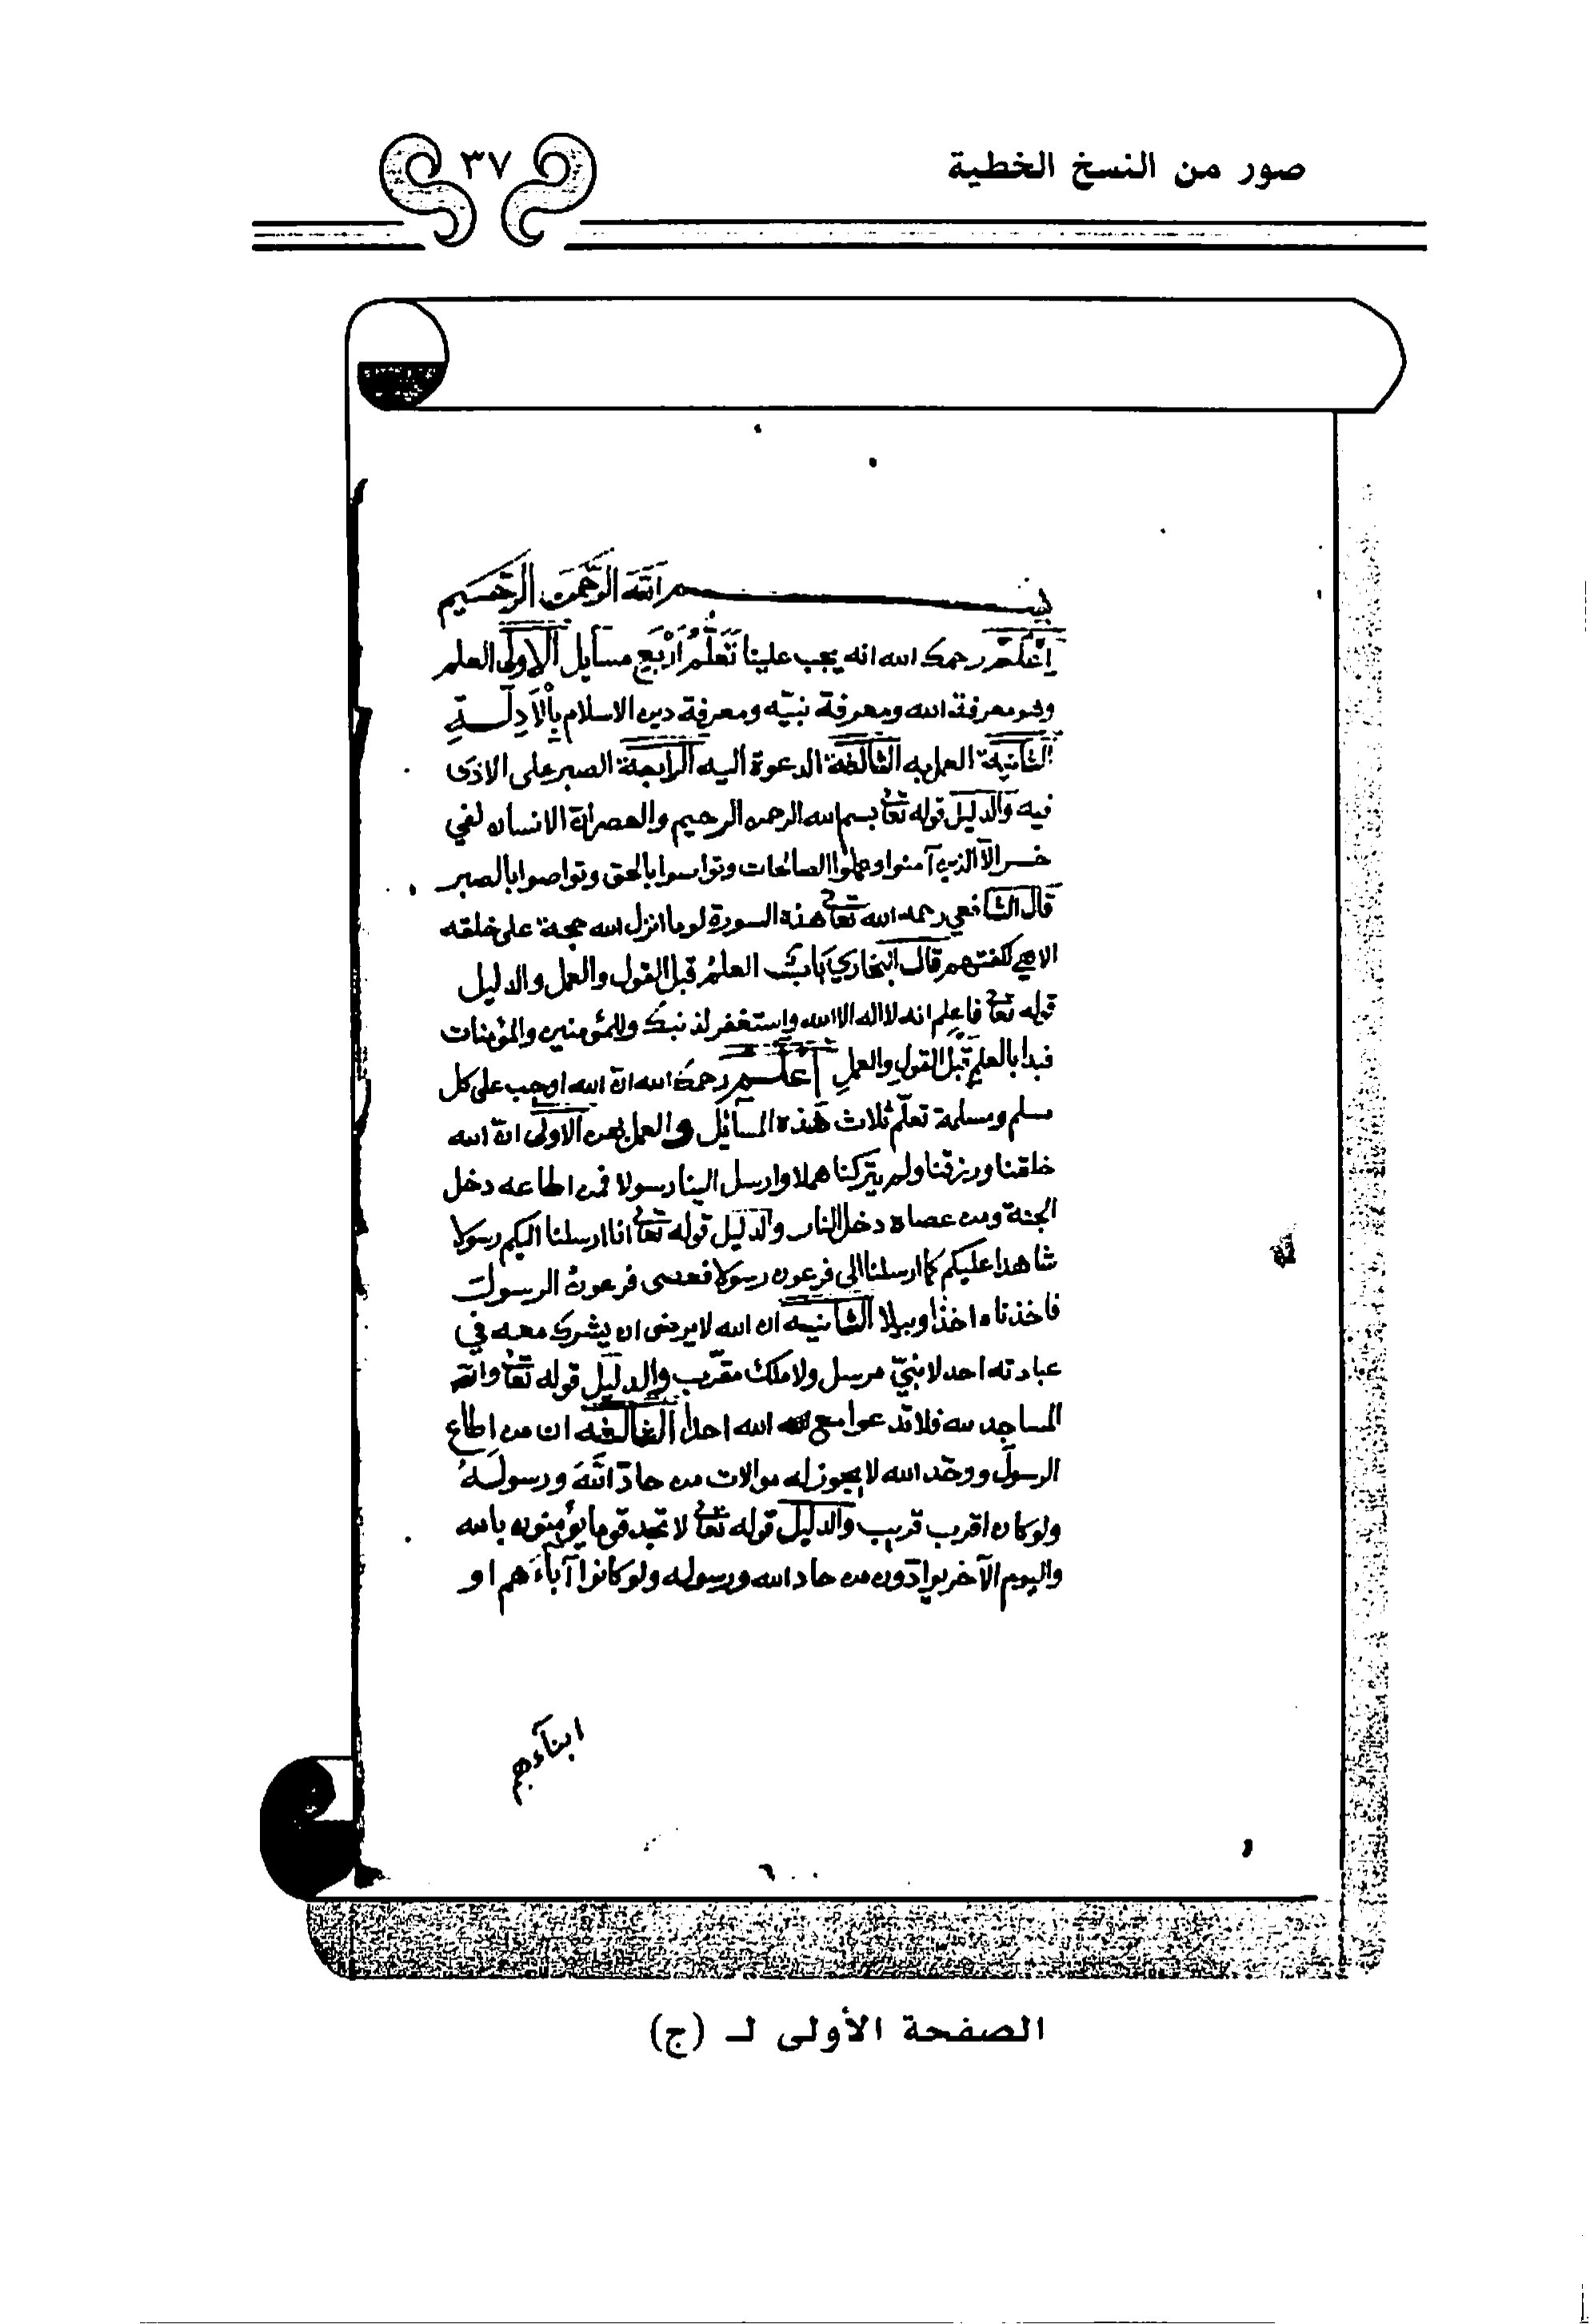 صور من النسخ الخطية
٣٧
بسم الله الرحمن الرحيم
اعلم رحمك الله انه يجب علينا تعلم اربع مسايل الاولى العلم
وهو معرفة الله ومعرفة نبيه ومعرفة دين الاسلام بالادلة
الثانية العمل به الثالثة الدعوة اليه الرابعة الصبر على الاذى
فيه والدليل قوله تعالى بسم الله الرحمن الرحيم والعصر ان الانسان لفي
خسر الا الذين آمنوا وعملوا الصالحات وتواصوا بالحق وتواصوا بالصبر
قال الشافعي رحمه الله تعالى هذه السورة لو ما انزل الله حجة على خلقه
الا هي لكفتهم قال البخاري باب العلم قبل القول والعمل والدليل
قوله تعالى فاعلم انه لا اله الا الله واستغفر لذنبك وللمؤمنين والمؤمنات
فبدا بالعلم قبل القول والعمل اعلم رحمك الله ان الله اوجب على كل
مسلم ومسلمة تعلم ثلاث هذه المسائل والعمل بهن الاولى ان الله
خلقنا ورزقنا ولم يتركنا هملا وارسل الينا رسولا فمن اطاعه دخل
الجنة ومن عصاه دخل النار والدليل قوله تعالى انا ارسلنا اليكم رسولا
شاهدا عليكم كما ارسلنا الى فرعون رسولا فعصى فرعون الرسول
فاخذناه اخذا وبيلا الثانيه ان الله لا يرضى ان يشرك معه في
عبادته احد لا نبيّ مرسل ولا ملك مقرّب والدليل قوله تعالى وان
المساجد لله فلا تدعوا مع الله احدا الثالثه ان من اطاع
الرسول ووحّد الله لا يجوز له موالات من حادّ الله ورسوله
ولو كان اقرب قريب والدليل قوله تعالى لا تجد قوما يؤمنون بالله
واليوم الآخر يوادّون من حاد الله ورسوله ولو كانوا آباءهم او
ابناءهم
الصفحة الأولى لـ (ج)